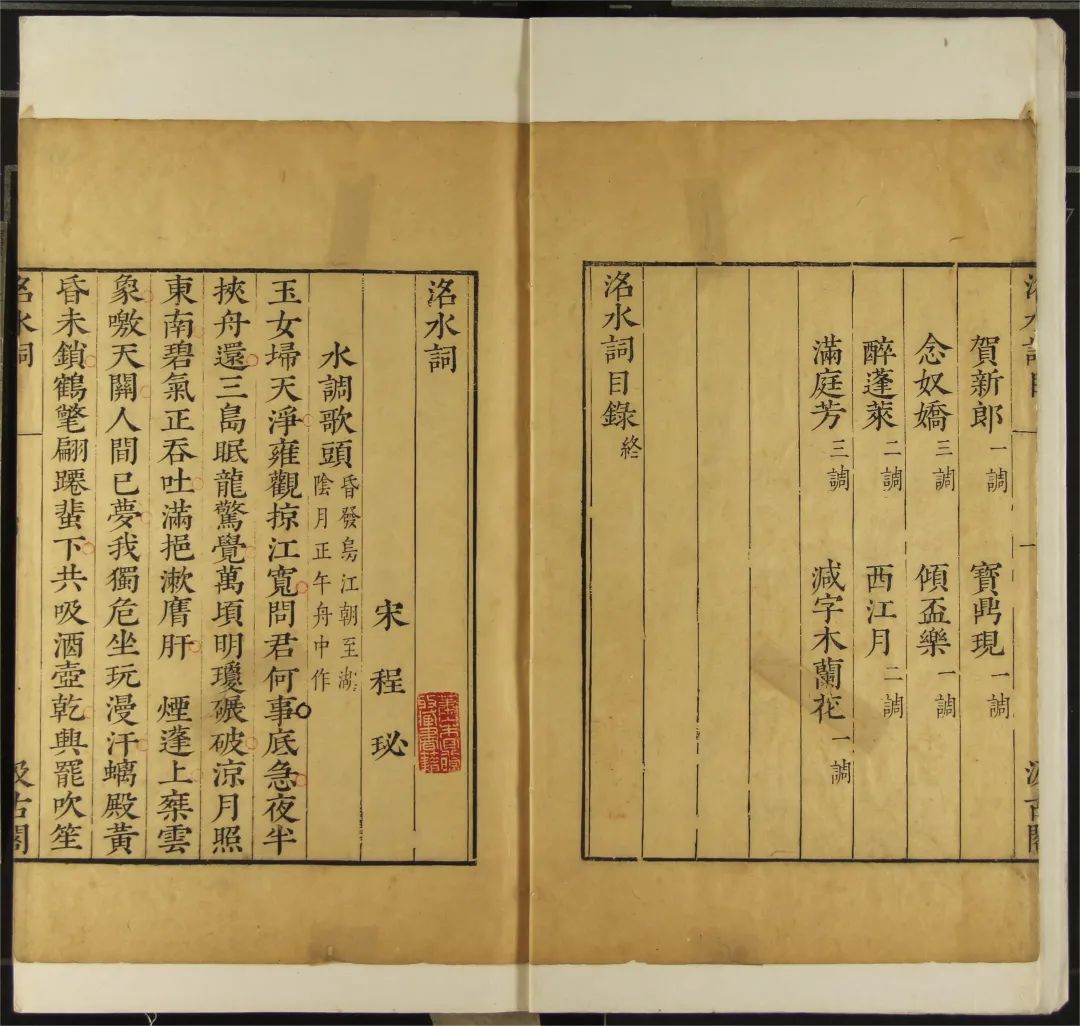 洺水詞目
汲古閣
賀新郎一調 寶鼎現一調
念奴嬌三調 傾盃樂一調
醉蓬萊二調 西江月二調
滿庭芳三調 減字木蘭花一調
洺水詞目錄終
洺水詞
宋 程 珌
水調歌頭昏發烏江朝至湖
陰月正午舟中作
玉女埽天淨雍觀掠江寬問君何事底急夜半
挾舟還三島眠龍驚覺萬頃明瓊碾破涼月照
東南碧氣正吞吐滿挹漱膺肝 煙蓬上
雲
象噭天關人間已夢我獨危坐玩漫汗螭殿黃
昏未鎖鶴氅翩躚蜚下共吸酒壺乾興罷吹笙
洺水詞
汲古閣